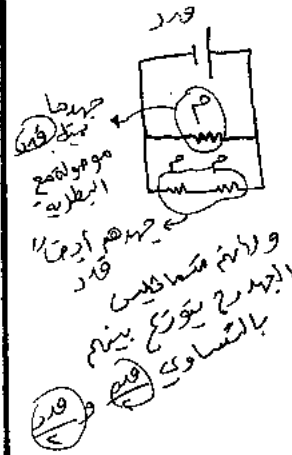 قدد
م
جهدها
مثل قدد
موصولة مع
البطارية
م م
جهدهم أيضًا
قدد
ولأنهم متماثلين
الجهد رح يتوزع بينهم
بالتساوي قدد/٢ و قدد/٢